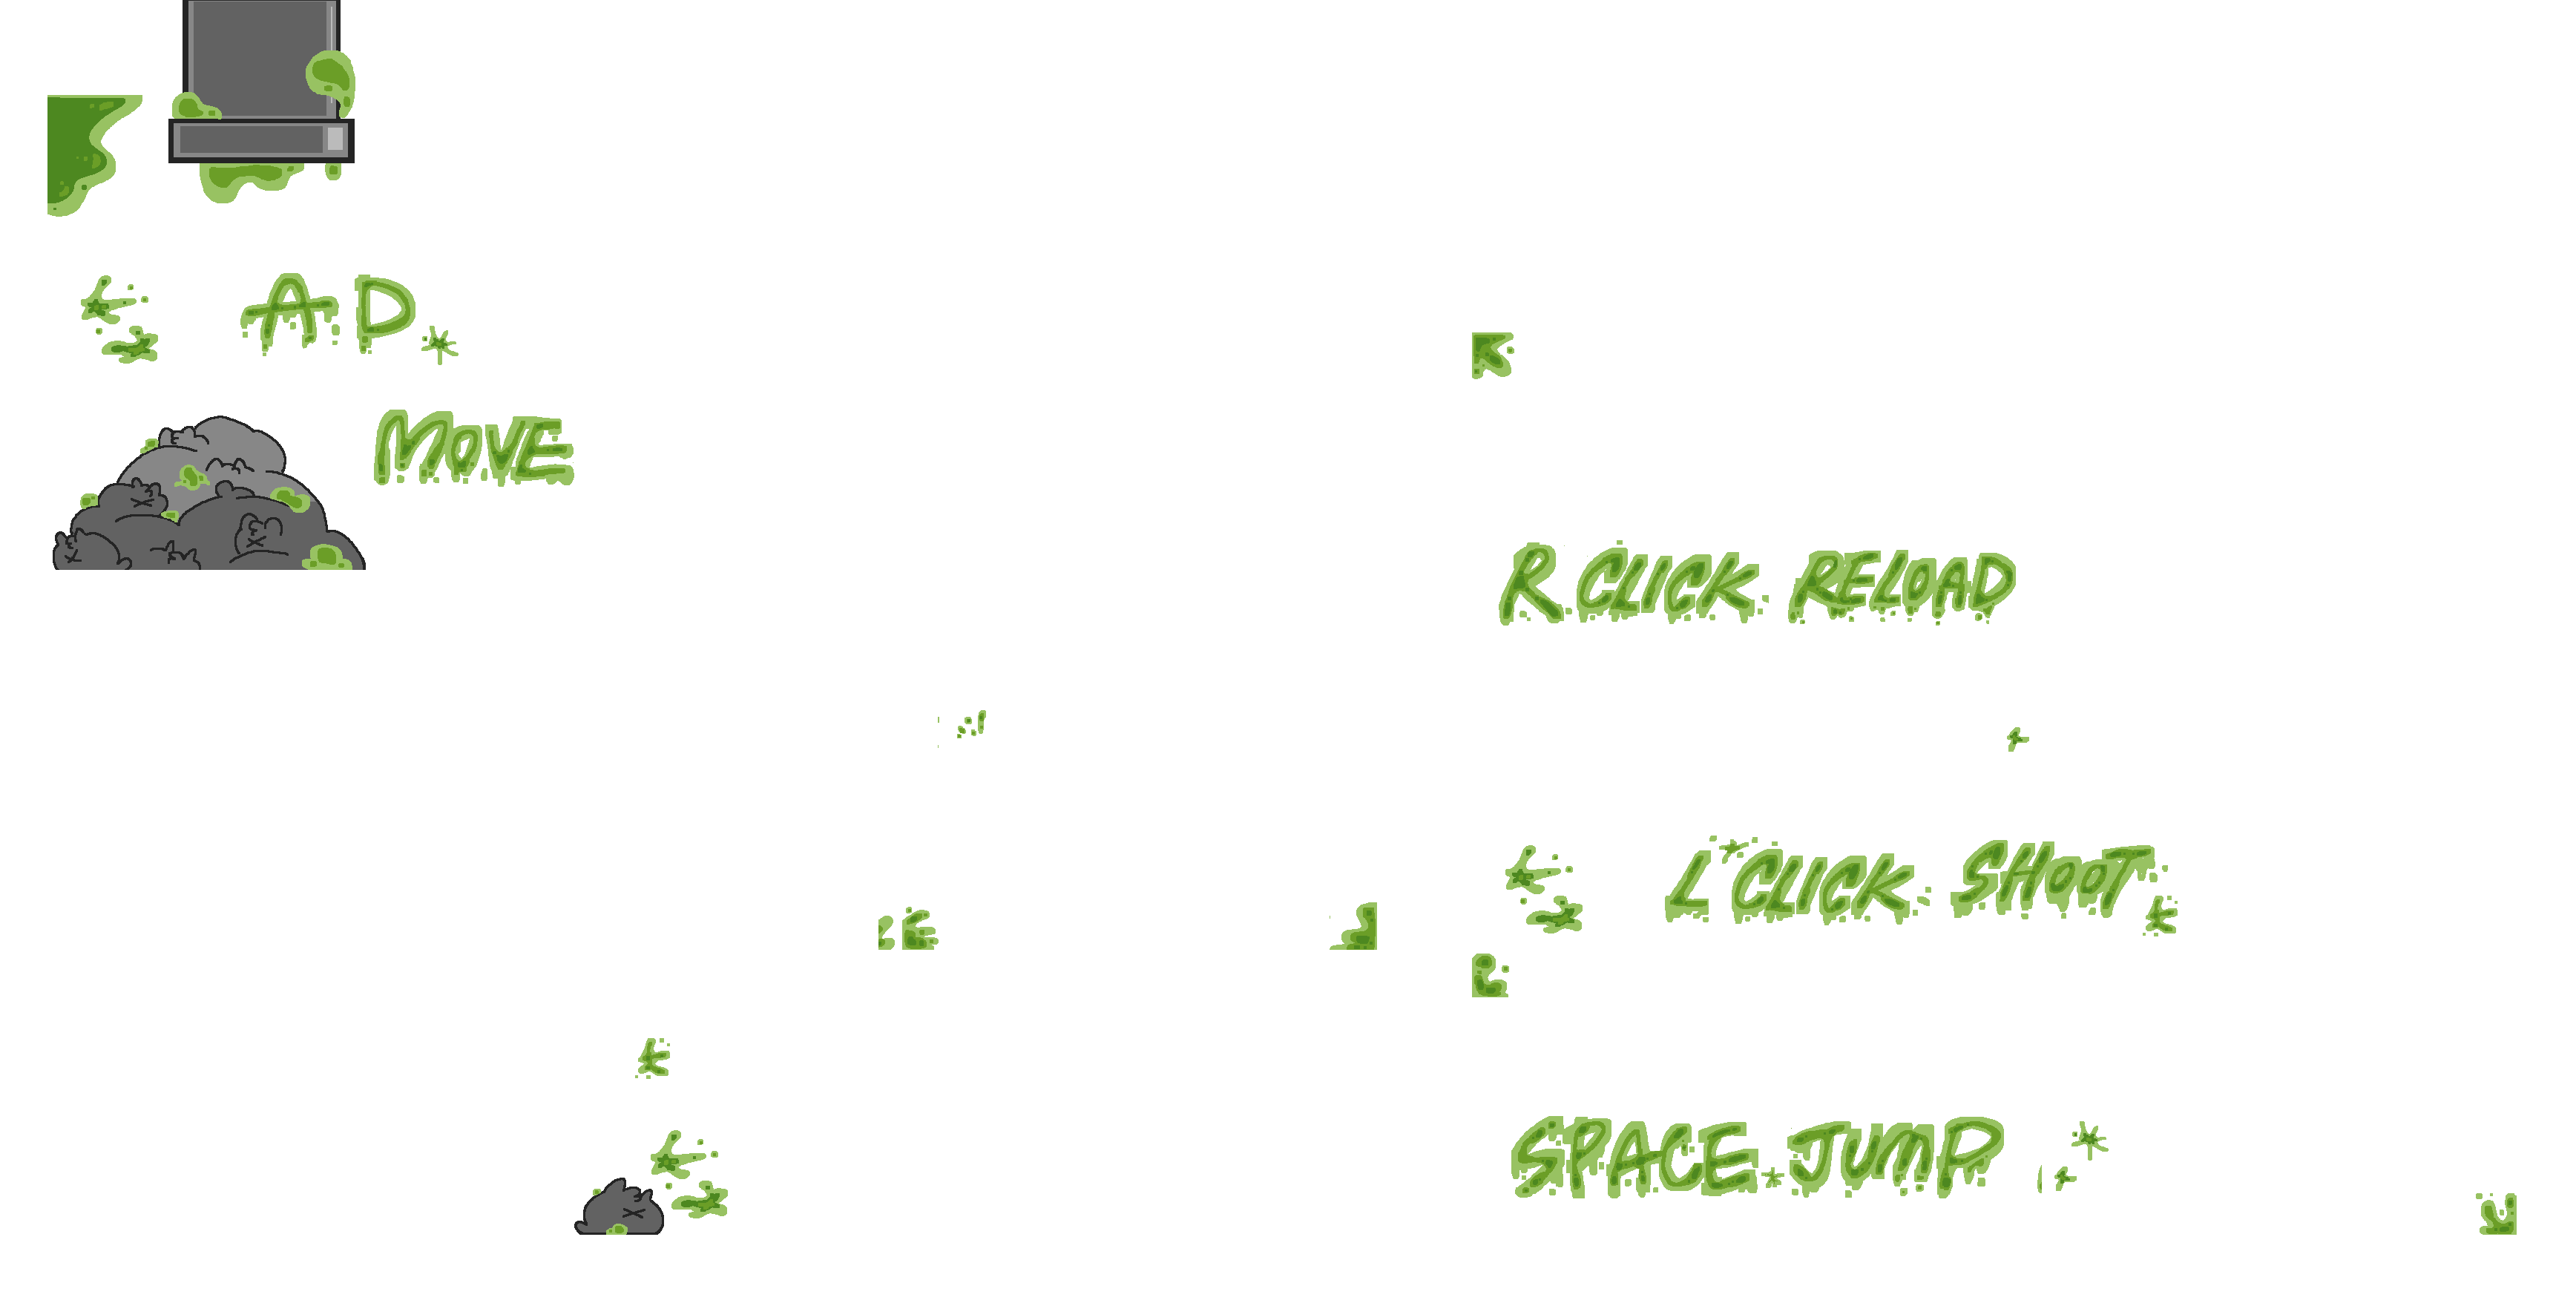 A D
MOVE
R CLICK RELOAD
L CLICK SHOOT
SPACE JUMP